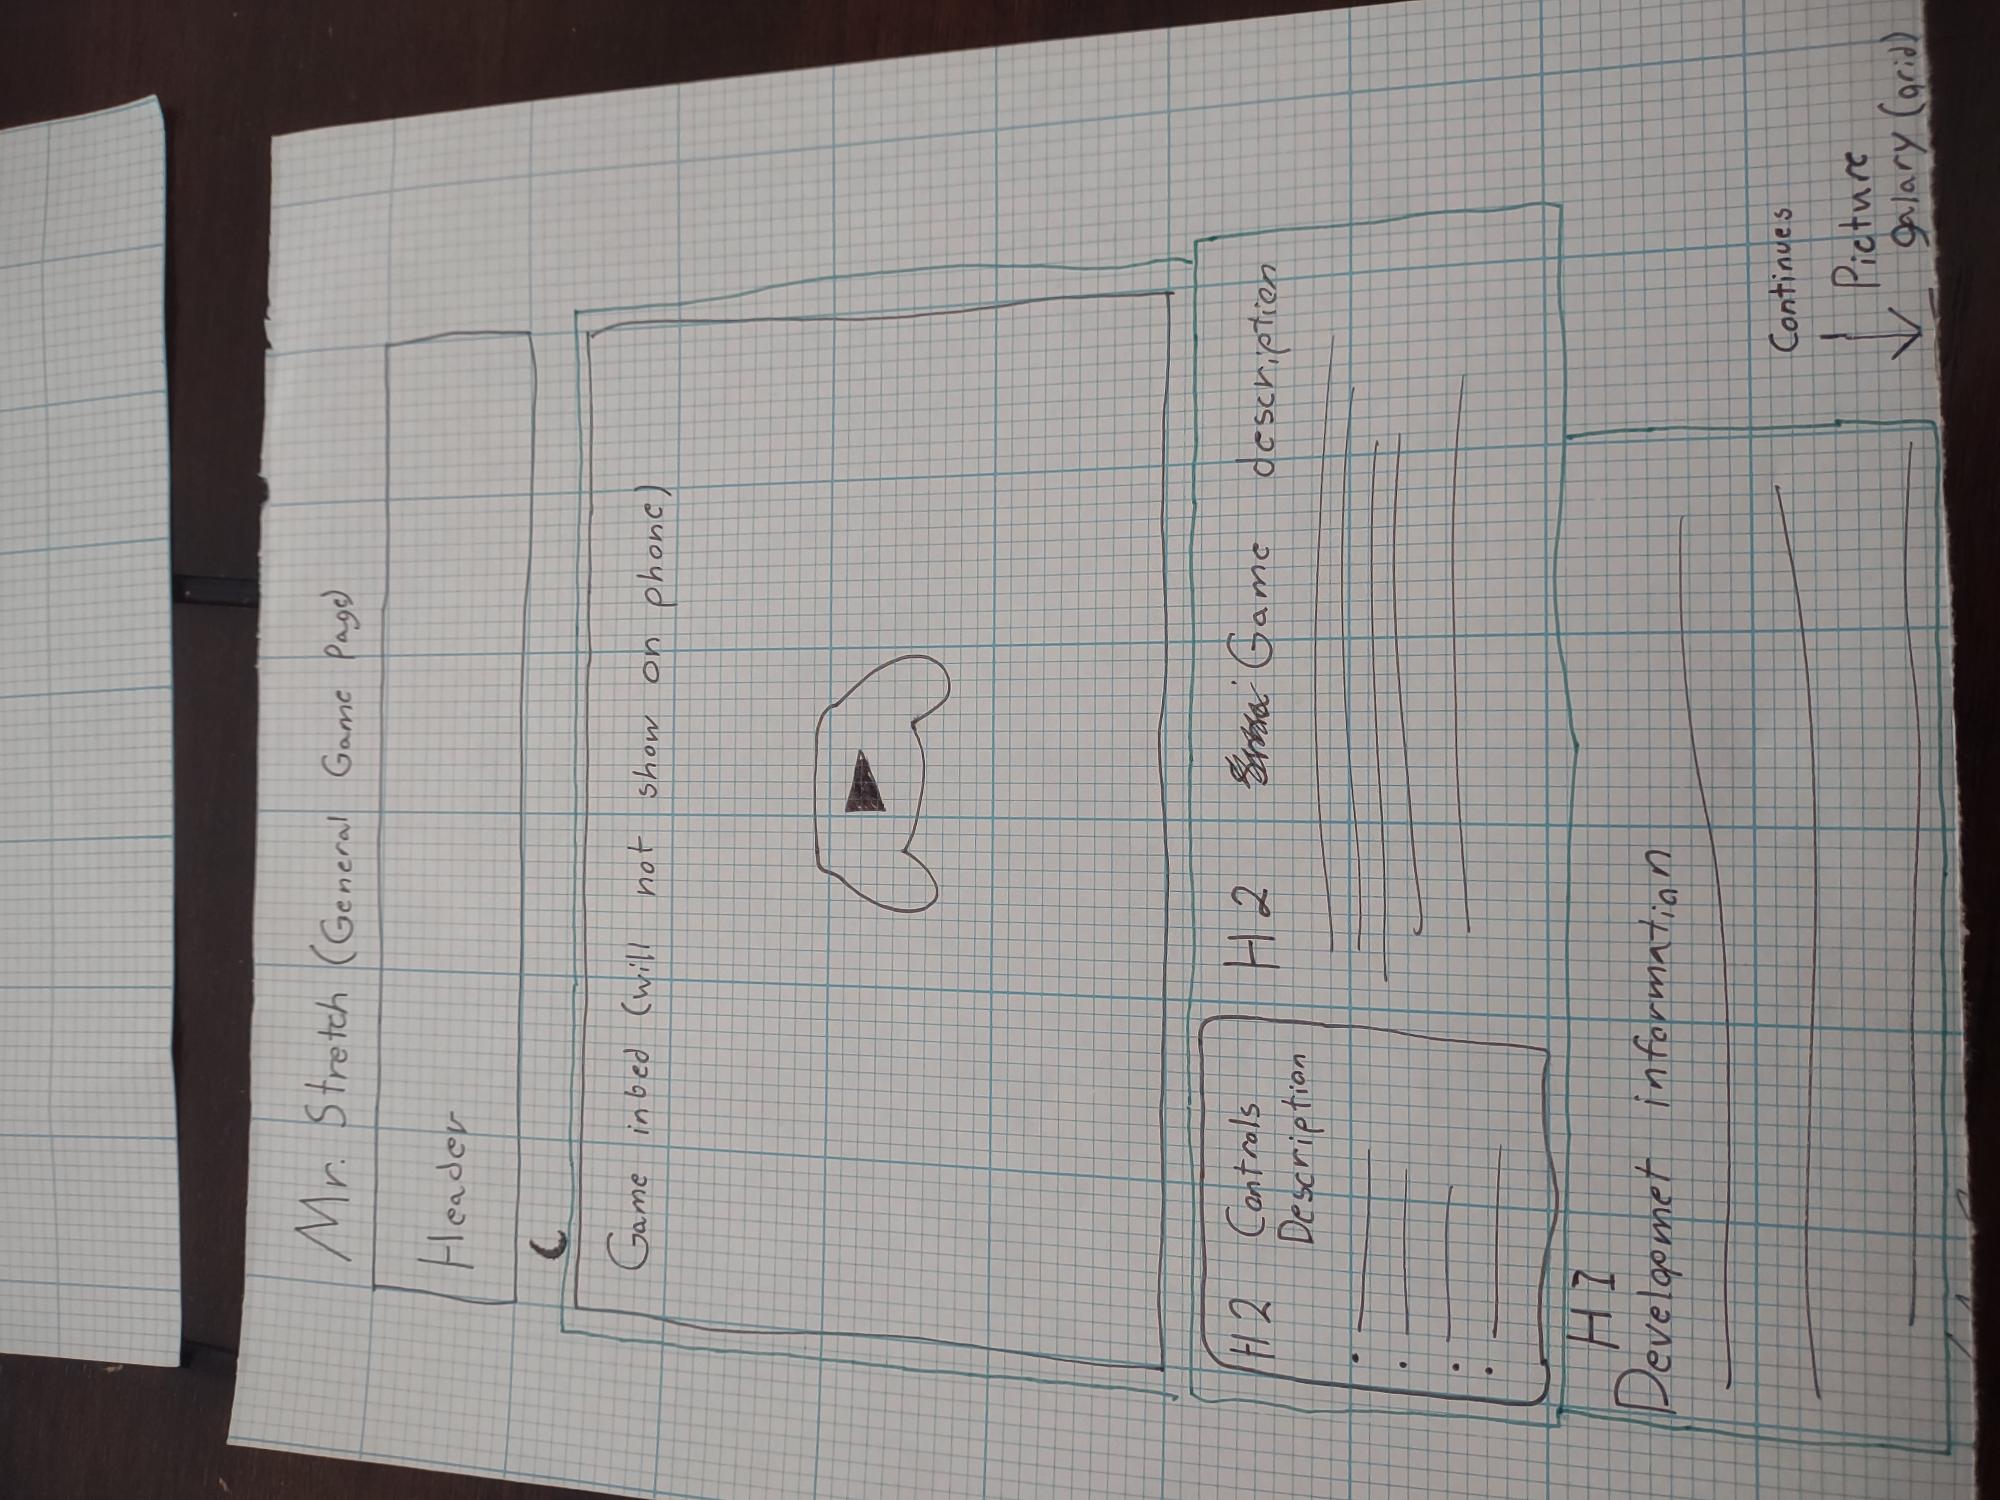 Mr. Stretch (General Game Page)
Header
Game inbed (will not show on phone)
H2 Controls
Description
H2 Game description
H1
Developmet information
Continues
Picture
galary (grid)